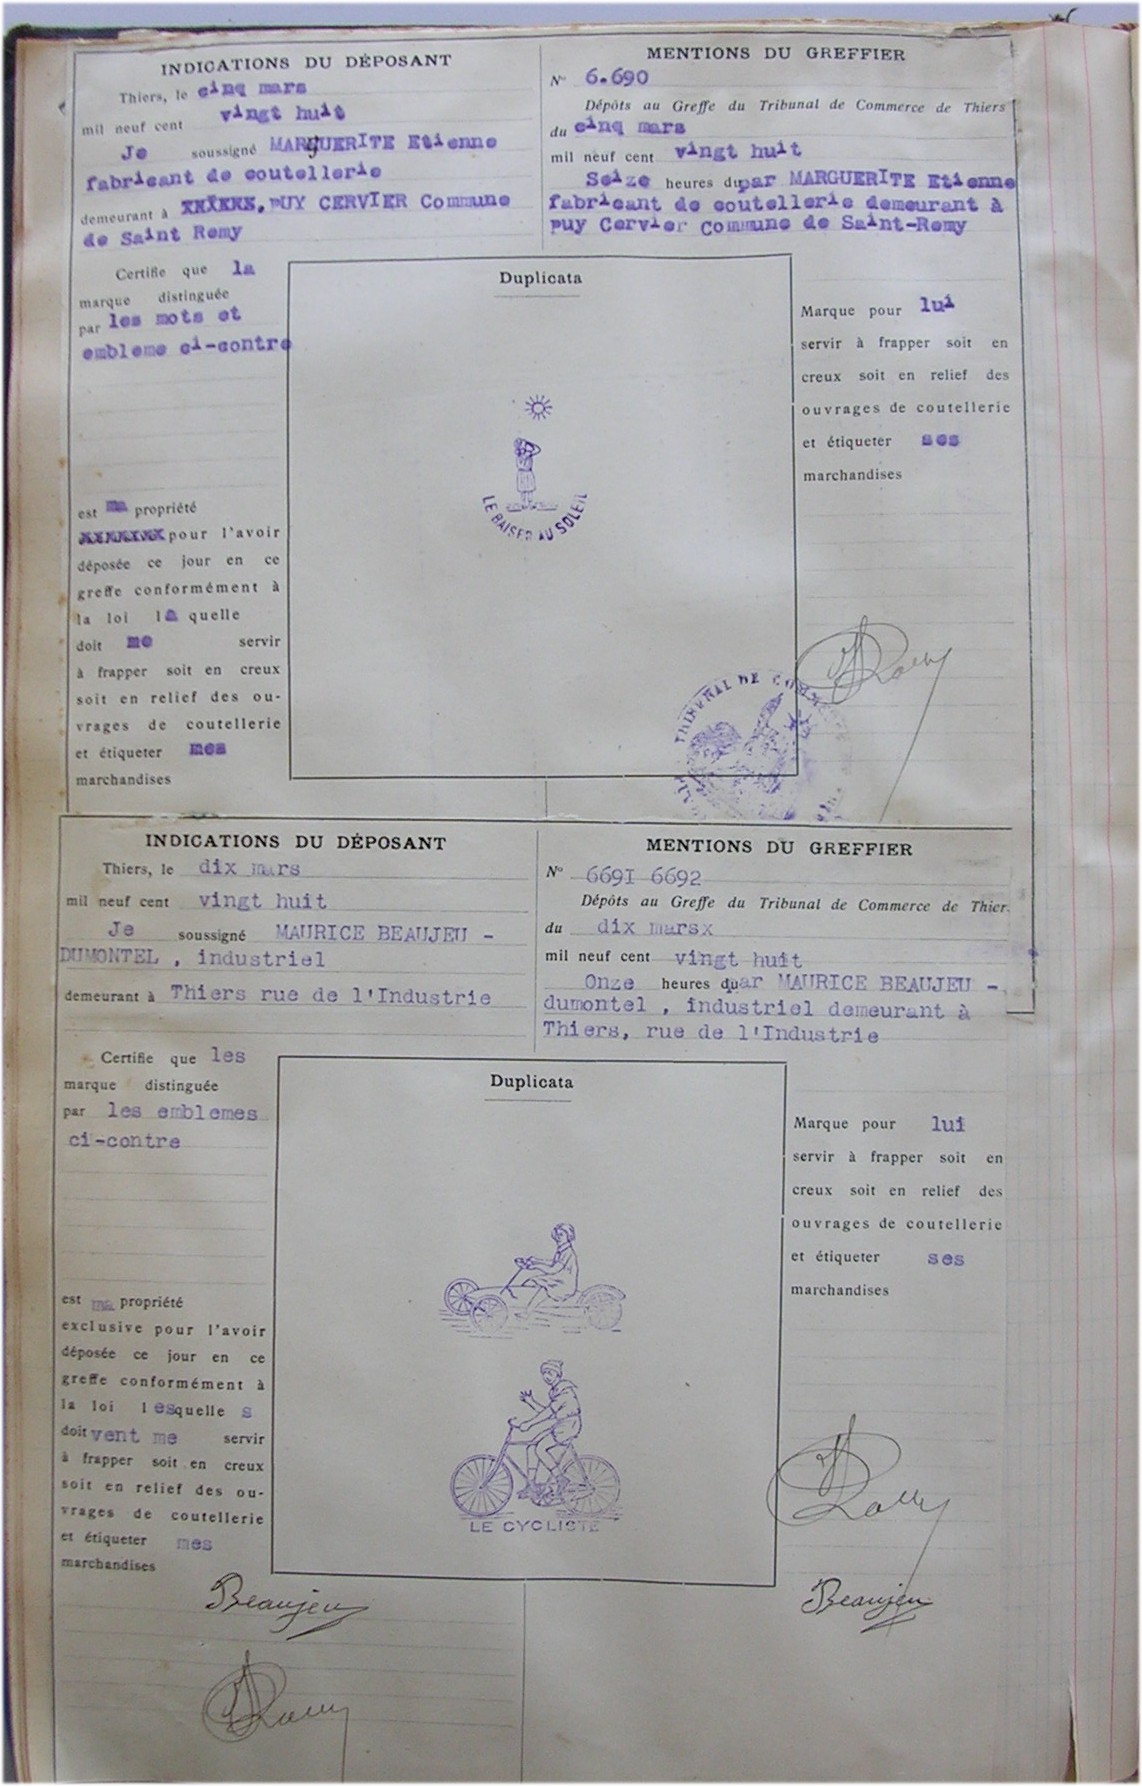 INDICATIONS DU DÉPOSANT
Thiers, le cinq mars
mil neuf cent vingt huit
Je soussigné MARGUERITE Etienne
fabricant de coutellerie
demeurant à XXXXXX, PUY CERVIER Commune
de Saint Remy
MENTIONS DU GREFFIER
N° 6.690
Dépôts au Greffe du Tribunal de Commerce de Thiers
du cinq mars
mil neuf cent vingt huit
Seize heures du par MARGUERITE Etienne
fabricant de coutellerie demeurant à
puy Cervier Commune de Saint-Remy
Certifie que la
marque distinguée
par les mots et
embleme ci-contre
est ma propriété
XXXXXXX pour l'avoir
déposée ce jour en ce
greffe conformément à
la loi la quelle
doit me servir
à frapper soit en creux
soit en relief des ou-
vrages de coutellerie
et étiqueter mes
marchandises
Duplicata
LE BAISER AU SOLEIL
Marque pour lui
servir à frapper soit en
creux soit en relief des
ouvrages de coutellerie
et étiqueter ses
marchandises
TRIBUNAL DE COMMERCE
INDICATIONS DU DÉPOSANT
Thiers, le dix mars
mil neuf cent vingt huit
Je soussigné MAURICE BEAUJEU -
DUMONTEL , industriel
demeurant à Thiers rue de l'Industrie
MENTIONS DU GREFFIER
N° 6691 6692
Dépôts au Greffe du Tribunal de Commerce de Thier
du dix marsx
mil neuf cent vingt huit
Onze heures du par MAURICE BEAUJEU -
dumontel , industriel demeurant à
Thiers, rue de l'Industrie
Certifie que les
marque distinguée
par les emblemes
ci-contre
est ma propriété
exclusive pour l'avoir
déposée ce jour en ce
greffe conformément à
la loi lesquelle s
doitvent me servir
à frapper soit en creux
soit en relief des ou-
vrages de coutellerie
et étiqueter mes
marchandises
Duplicata
LE CYCLISTE
Marque pour lui
servir à frapper soit en
creux soit en relief des
ouvrages de coutellerie
et étiqueter ses
marchandises
Beaujeu
Beaujeu